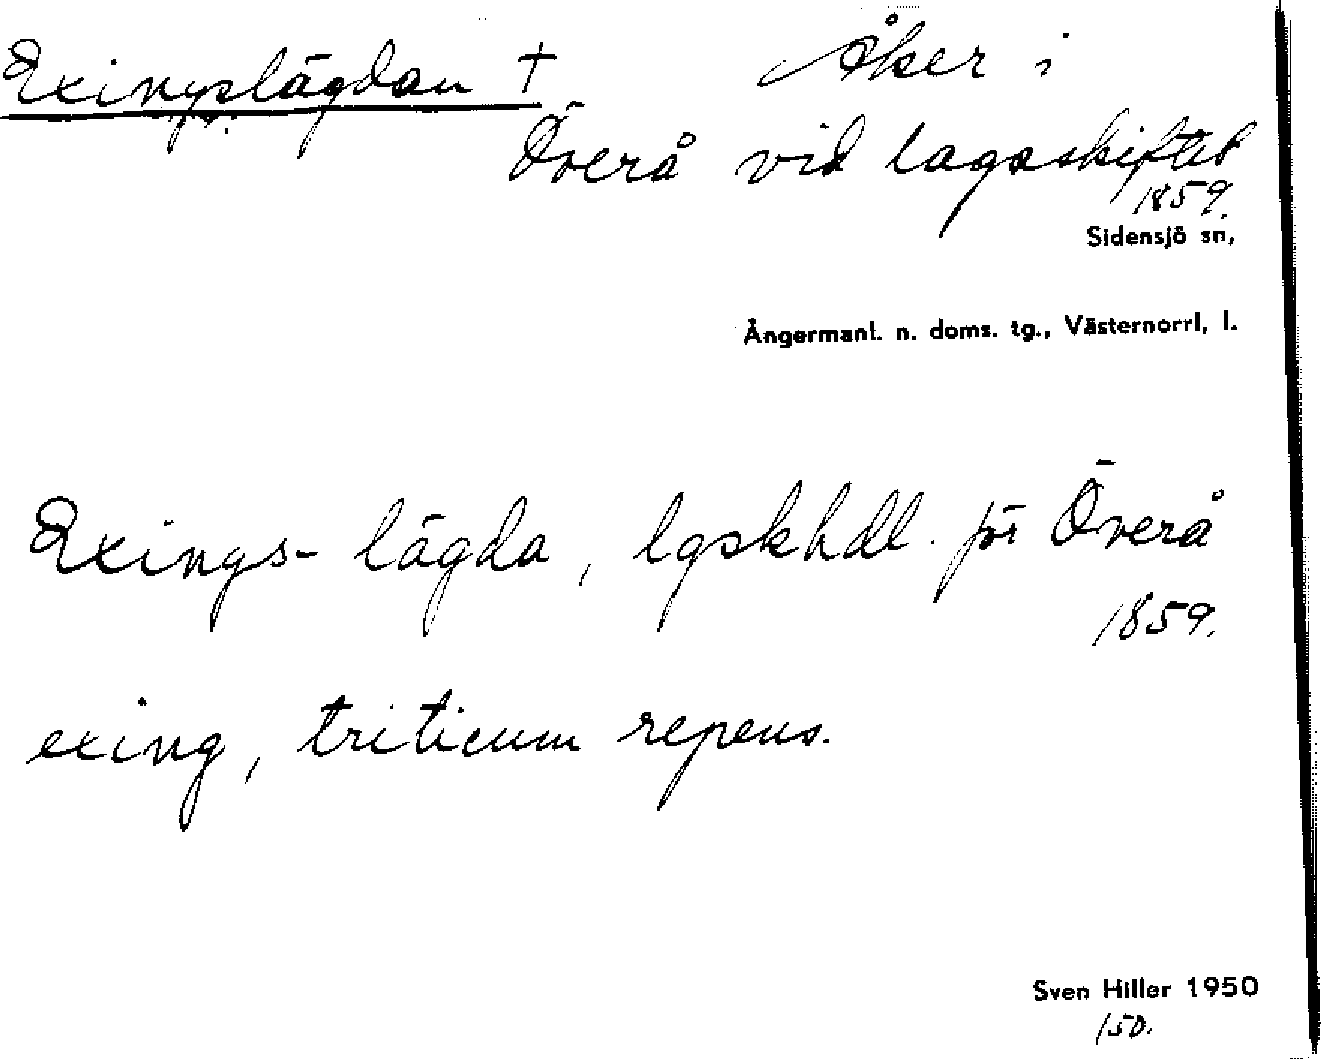 Exingslägdan † Åker i
Överå vid lagaskiftet
1859.
Sidensjö sn,
Ångermanl. n. doms. tg., Västernorrl. l.
Exings-lägda, lgskhdl. för Överå
1859.
exing, triticum repens.
Sven Hiller 1950
150.